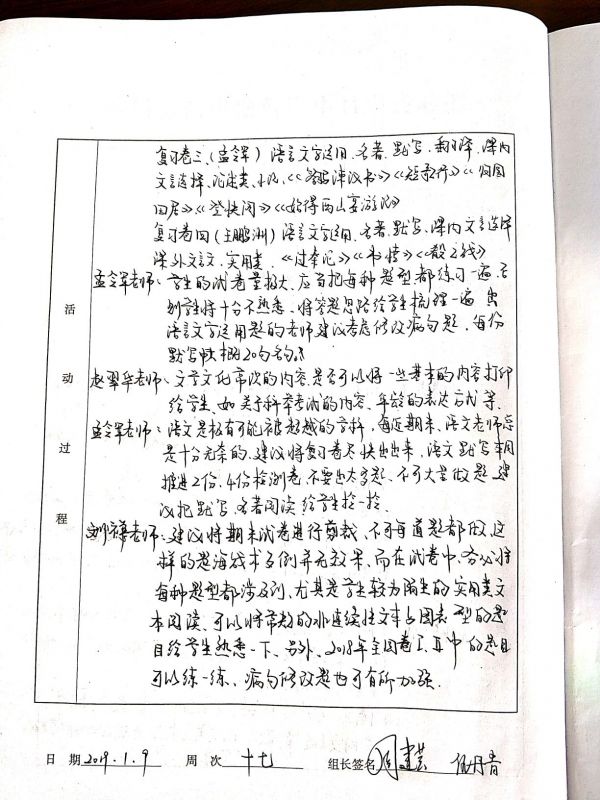 复习卷三、(孟令军) 语言文字运用、名著、默写、翻译、课内
文言选择、论述类、小说、《《答司马谏议书》》《短歌行》《归园
田居》《登快阁》《始得西山宴游记》
复习卷四(王鹏洲) 语言文字运用、名著、默写、课内文言选择
课外文言文、实用类、《过秦论》《书愤》《殽之战》
孟令军老师:学生的试卷量极大,应当把每种题型都练习一遍,否
则学生将十分不熟悉,将答题思路给学生梳理一遍,出
语言文字运用题的老师建议考虑修改病句题,每份
默写中20句名句。
赵翠华老师:文学文化常识的内容,是否可以将一些基本的内容打印
给学生,如关于科举考试的内容、年龄的表达方式等。
孟令军老师:语文是极有可能被超越的学科,每近期末,语文老师总
是十分无奈的,建议将复习卷尽快出出来,语文默写本周
推进2份,4份检测卷不要出太多题,不可大量做题,建
议把默写、名著阅读给学生拎一拎。
老师:建议将期末试卷进行剪裁,不可每道题都做,这
样的题海战术多例并无效果,而在试卷中,务必将
每种题型都涉及到,尤其是学生较为陌生的实用类文
本阅读,可以将常规的非连续性文本与图表型的题
目给学生熟悉一下,另外,2018年全国卷I、II中的题目
可以练一练,病句修改题也可有所加强。
活
动
过
程
日 期 2019.1.9 周 次 十七 组长签名